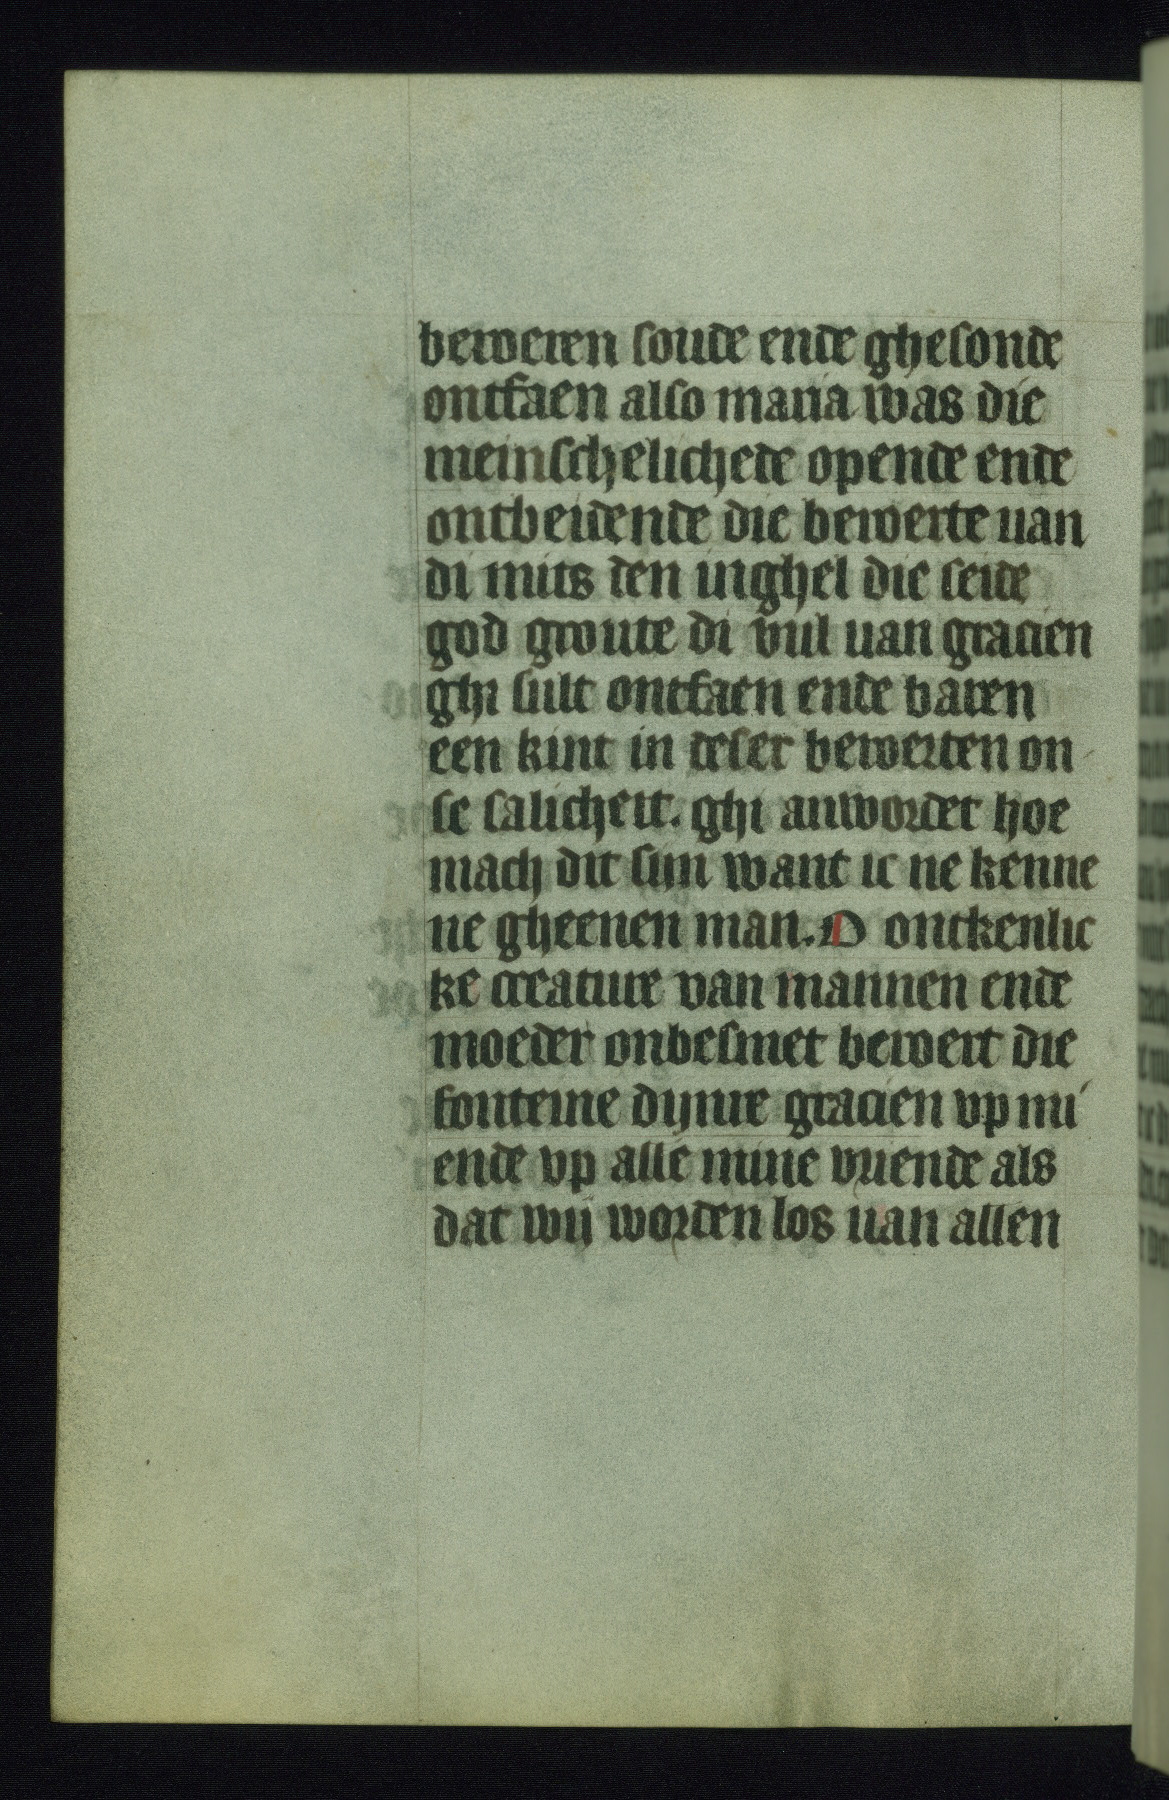 beroeren soude ende ghesonde
ontfaen also maria was die
meinschelichede opende ende
ontbeidende die beroerte uan
di mits den inghel die seide
god groute di vul uan gracien
ghi sult ontfaen ende baren
een kint in deser beroerten on
se salicheit. ghi anwordet hoe
mach dit siin want ic ne kenne
ne gheenen man. O ontkenlic
ke creature van mannen ende
moeder onbesmet beroert die
fonteine dijnre gracien vp mi
ende vp alle mine vriende als
dat wij worden los uan allen